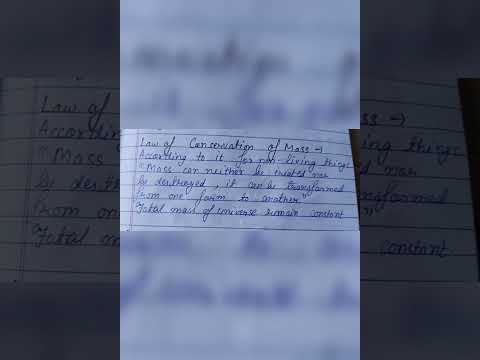 Law of Conservation of Mass →
According to it for non-living things
"Mass can neither be created nor
be destroyed, it can be transformed
from one form to another"
"Total mass of universe remain constant